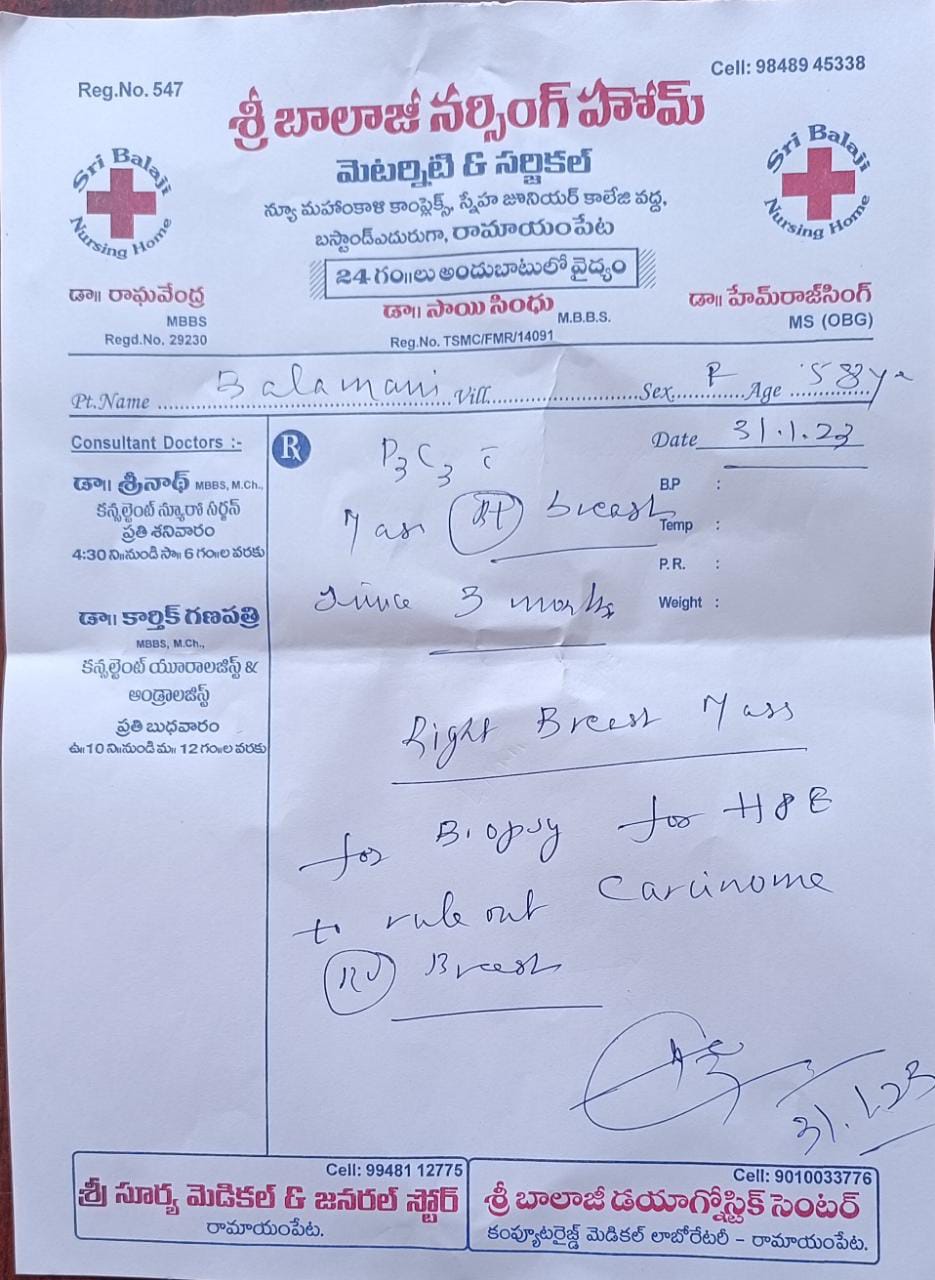 Reg.No. 547
Cell: 98489 45338
శ్రీ బాలాజీ నర్సింగ్ హోమ్
Sri Balaji Nursing Home
Sri Balaji Nursing Home
మెటర్నిటి & సర్జికల్
న్యూ మహాంకాళి కాంప్లెక్స్, స్నేహ జూనియర్ కాలేజి వద్ద,
బస్టాండ్ఎదురుగా, రామాయంపేట
24 గం॥లు అందుబాటులో వైద్యం
డా॥ రాఘవేంద్ర
MBBS
Regd.No. 29230
డా॥ సాయి సింధు
M.B.B.S.
Reg.No. TSMC/FMR/14091
డా॥ హేమ్‌రాజ్‌సింగ్
MS (OBG)
Pt.Name Balamani Vill. Sex F Age 58 yr
Consultant Doctors :-
డా॥ శ్రీనాథ్ MBBS, M.Ch.,
కన్సల్టెంట్ న్యూరో సర్జన్
ప్రతి శనివారం
4:30 ని॥నుండి సా॥ 6 గం॥ల వరకు
డా॥ కార్తిక్ గణపత్రి
MBBS, M.Ch.,
కన్సల్టెంట్ యూరాలజిస్ట్ &
ఆండ్రాలజిస్ట్
ప్రతి బుధవారం
ఉ॥10 ని॥నుండి మ॥ 12 గం॥ల వరకు
Rx
Date 31.1.23
B.P :
Temp :
P.R. :
Weight :
P3C3 c̄
Mass Rt breast
since 3 months
Right Breast Mass
for Biopsy for H&E
to rule out Carcinoma
Rt Breast
31.1.23
Cell: 99481 12775
శ్రీ సూర్య మెడికల్ & జనరల్ స్టోర్
రామాయంపేట.
Cell: 9010033776
శ్రీ బాలాజీ డయాగ్నోస్టిక్ సెంటర్
కంప్యూటరైజ్డ్ మెడికల్ లాబోరేటరీ – రామాయంపేట.